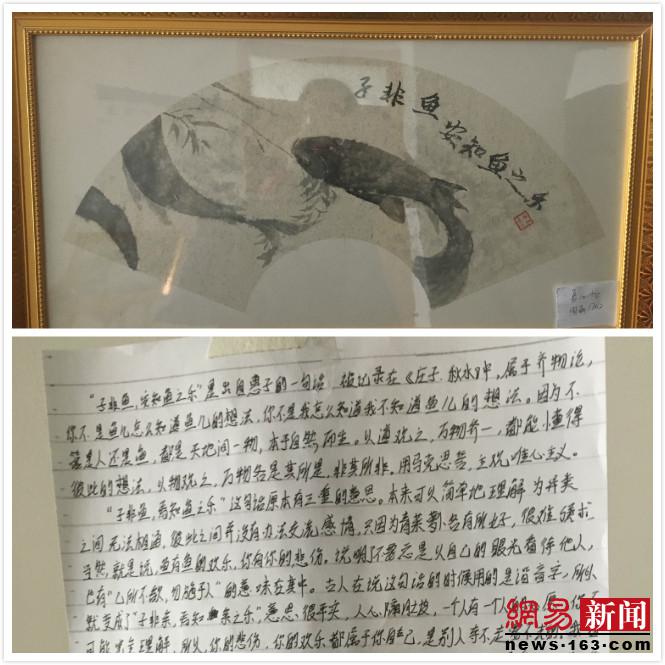 子非鱼
安知鱼之乐
"子非鱼,安知鱼之乐"是出自惠子的一句话 被记录在《庄子·秋水》中,属于齐物论,
你不是鱼儿怎么知道鱼儿的想法,你不是我怎么知道我不知道鱼儿的想法。因为不
管是人还是鱼,都是天地间一物,本于自然而生。以道观之,万物齐一,都能懂得
彼此的想法,从物观之,万物各是其所是,非其所非,用马克思答,主观唯心主义。
"子非鱼,焉知鱼之乐"这句话原本有三重的意思。本来可以简单地理解为异类
之间无法相通,彼此之间并没有办法交流感情,只因为青菜萝卜各有所好,很难强求
当然,就是说,鱼有鱼的欢乐,你有你的悲伤。说明不要总是以自己的眼光看待他人,
也有"己所不欲,勿施于人"的意味在其中。古人在说这句话的时候用的是谐音字,所以
就变成了"子非余,焉知余之乐",意思很寻实,人心隔肚皮,一个人有一个人的
可能完全理解,所以,你的悲伤,你的欢乐都属于你自己,是别人带不走
网易新闻
news·163.com